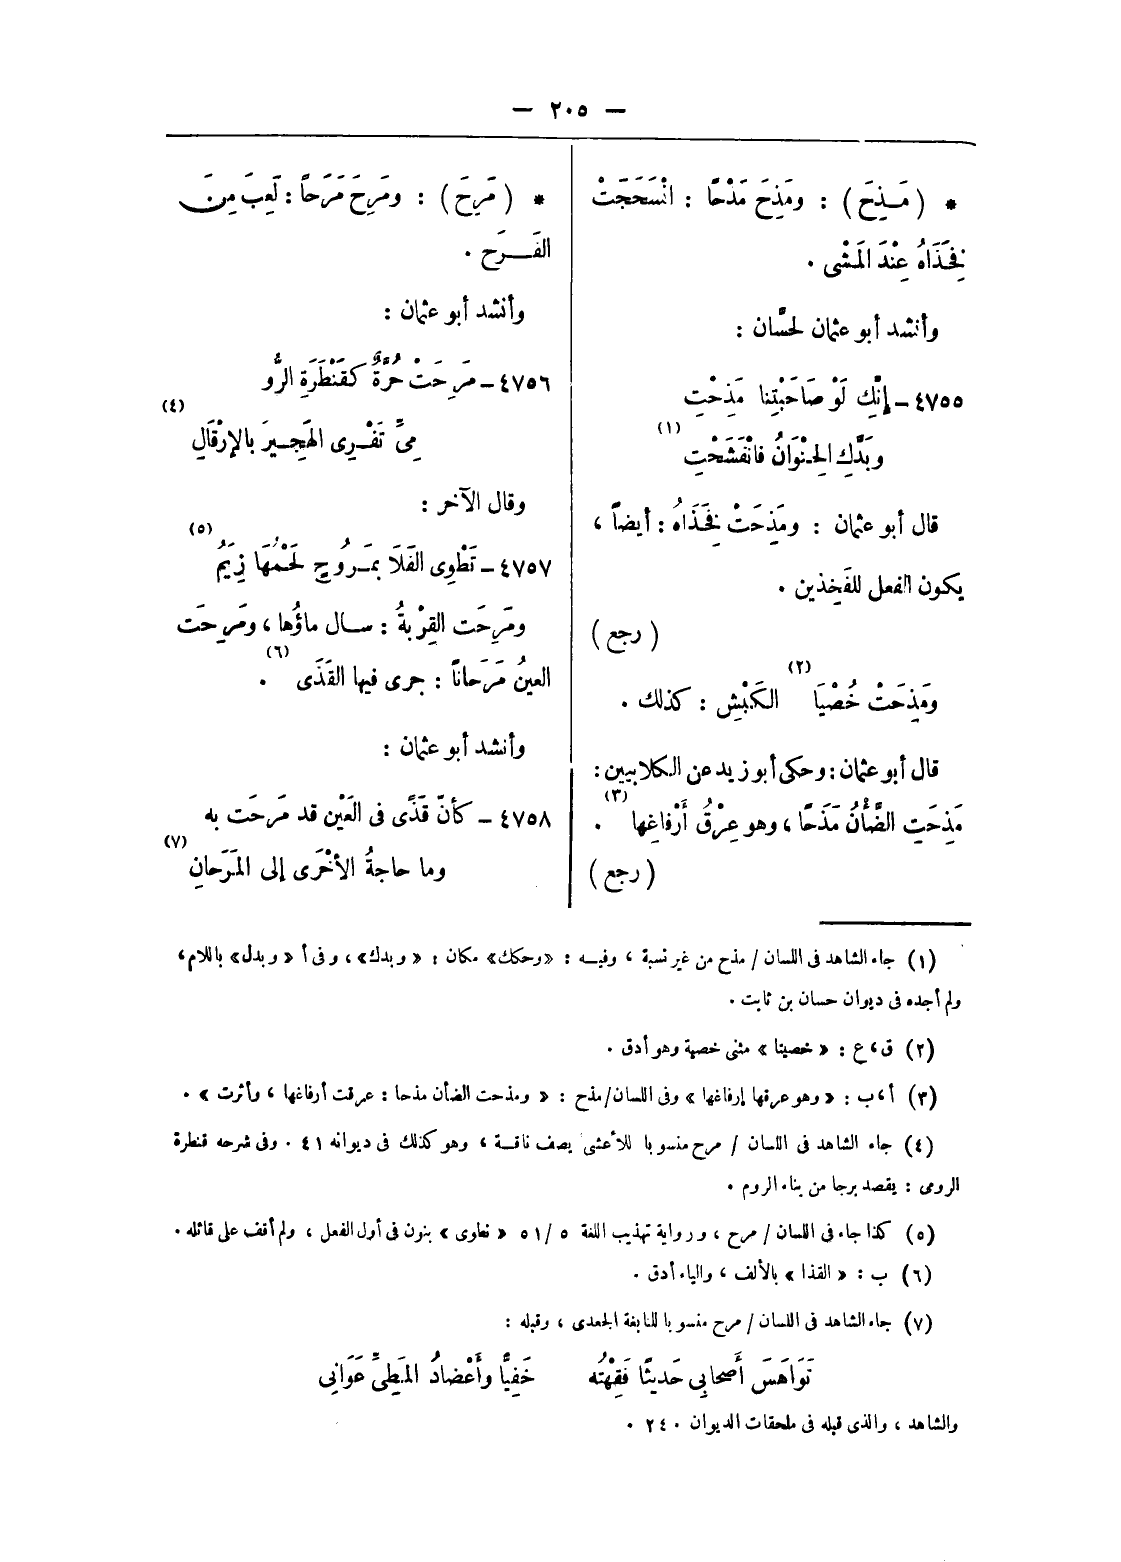 — ٢٠٥ —
* ( مَـذِحَ ) : ومَذِحَ مَذْحًا : انْسَحَجَتْ
فَخَذَاهُ عِنْدَ المَشْى .
وأنشد أبو عثمان لحسَّان :
٤٧٥٥ـ إنَّكِ لَوْ صَاحَبْتِنا مَذِحْتِ
وبَدَّكِ الحِنْوَانُ فانْفَشَحْتِ (١)
قال أبو عثمان : ومَذِحَتْ فَخَذَاهُ : أيضاً ،
يكون الفعل للفَخِذين .
( رجع )
ومَذِحَتْ خُصْيَا (٢) الكَبْشِ : كذلك .
قال أبو عثمان : وحكى أبو زيد عن الكلابيين :
مَذِحَتِ الضَّأنُ مَذَحًا ، وهو عِرْقُ أَرْفاغِها (٣) .
( رجع )
* ( مَرِحَ ) : ومَرِحَ مَرَحاً : لَعِبَ مِنَ
الفَـــرَح .
وأنشد أبو عثمان :
٤٧٥٦ـ مَرِحَتْ حُرَّةٌ كقَنْطَرَةِ الرُّو
مِىِّ تَفْـرِى الهَجِـيرَ بالإرْقَالِ (٤)
وقال الآخر :
٤٧٥٧ـ تَطْوِى الفَلَا بمَـرُوحٍ لَحْمُهَا زِيَمُ (٥)
ومَرِحَت القِرْبةُ : ســال ماؤُها ، ومَرِحَت
العينُ مَرَحاناً : جرى فيها القَذَى (٦) .
وأنشد أبو عثمان :
٤٧٥٨ ـ كأنّ قَذًى فى العَيْن قد مَرِحَت به
وما حاجةُ الأخْرَى إلى المَرَحانِ (٧)
(١) جاء الشاهد فى اللسان / مذح من غير نسبة ، وفيــه : «وحكك» مكان : « وبدك» ، وفى أ « وبدل» باللام،
ولم أجده فى ديوان حسان بن ثابت .
(٢) ق ، ع : « خصيتا » مثنى خصية وهو أدق .
(٣) أ ، ب : « وهو عرقها إرفاغها » وفى اللسان/مذح : « ومذحت الضأن مذحا : عرقت أرفاغها ، وأثرت » .
(٤) جاء الشاهد فى اللسان / مرح منسوبا للأعشى يصف ناقــة ، وهو كذلك فى ديوانه ٤١ . وفى شرحه قنطرة
الرومى : يقصد برجا من بناء الروم .
(٥) كذا جاء فى اللسان / مرح ، ورواية تهذيب اللغة ٥ / ٥١ « نطوى » بنون فى أول الفعل ، ولم أقف على قائله .
(٦) ب : « القذا » بالألف ، والياء أدق .
(٧) جاء الشاهد فى اللسان / مرح منسوبا للنابغة الجعدى ، وقبله :
تَوَاهَسَ أَصحابِي حَديثًا فَقِهْتُه خَفِيًّا وأَعْضادُ المَطِىِّ عَوَانِى
والشاهد ، والذى قبله فى ملحقات الديوان ٢٤٠ .